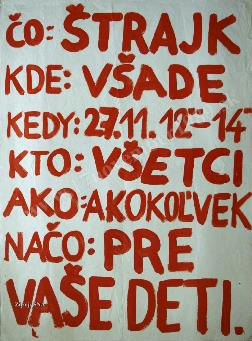 ČO: ŠTRAJK
KDE: VŠADE
KEDY: 27.11. 12⁰⁰–14⁰⁰
KTO: VŠETCI
AKO: AKOKOĽVEK
NAČO: PRE
VAŠE DETI.